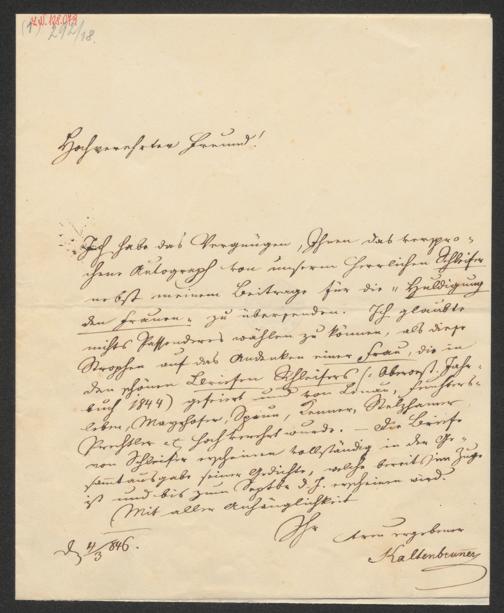 H.I.N. 128.079
(1) 292/18.
Hochverehrter Freund!
Ich habe das Vergnügen, Ihnen das verspro-
chene Autograph von unserm herrlichen Schleifer
nebst meinem Beitrage für die „Huldigung
den Frauen" zu übersenden. Ich glaubte
nichts Passenderes wählen zu können, als diese
Strophen auf das Andenken einer Frau, die in
den schönen Briefen Schleifers (s. Oberöst. Jahr-
buch 1844) gefeiert und von Lenau, Feuchters-
leben, Mayrhofer, Spaun, Kenner, Stelzhamer
Prechtler etc. hochverehrt wurde. — Die Briefe
von Schleifer erscheinen vollständig in der Ge-
samtausgabe seiner Gedichte, welche bereits im Zuge
ist und bis zum Septbr d. J. erscheinen wird.
Mit aller Anhänglichkeit
Ihr
treu ergebener
Kaltenbrunner
4/3 846.